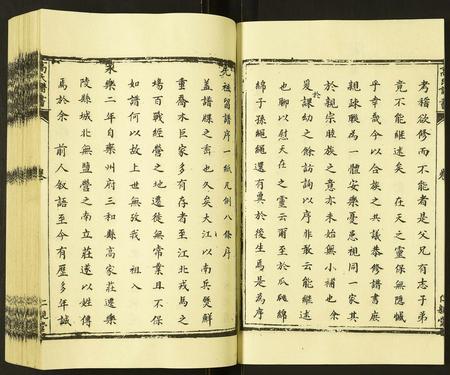 考稽欲修而不能者是父兄有志子弟
竟不能繼述矣在天之靈保無隱憾
乎幸哉今以合族之共議恭修譜書庶
親疎聯為一體安樂憂患視同一家其
於親宗睦族之意亦未始無小補也余
於
課幼之餘訪詢以序非敢云能繼述
也聊以慰天在之靈云爾至於瓜瓞綿
綿子孫繩繩還有冀於後生焉是為序
先祖留譜序一紙凡例八條序
蓋譜牒之啇也久矣大江以南兵燹鮮
重喬木巨家多有存者至江北戎馬之
場百戰經營之地遷徙無常業且不保
如譜何以故上世無攷我祖入
永樂二年自縣州府三和縣高家莊遷樂
陵縣城北無鹽營之南立莊遂以姓傳
焉於余前人叙語至今有歷多年誠
高氏譜書
卷
仁親堂